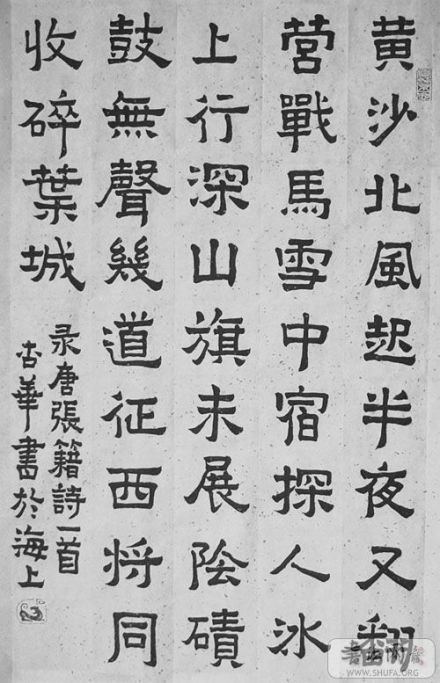 黄沙北風起半夜又翻
营戰馬雪中宿探人冰
上行深山旗未展陰磧
鼓無聲幾道征西将同
收碎葉城
录唐張籍詩一首
杏華書於海上
WWW.SHUFA.ORG